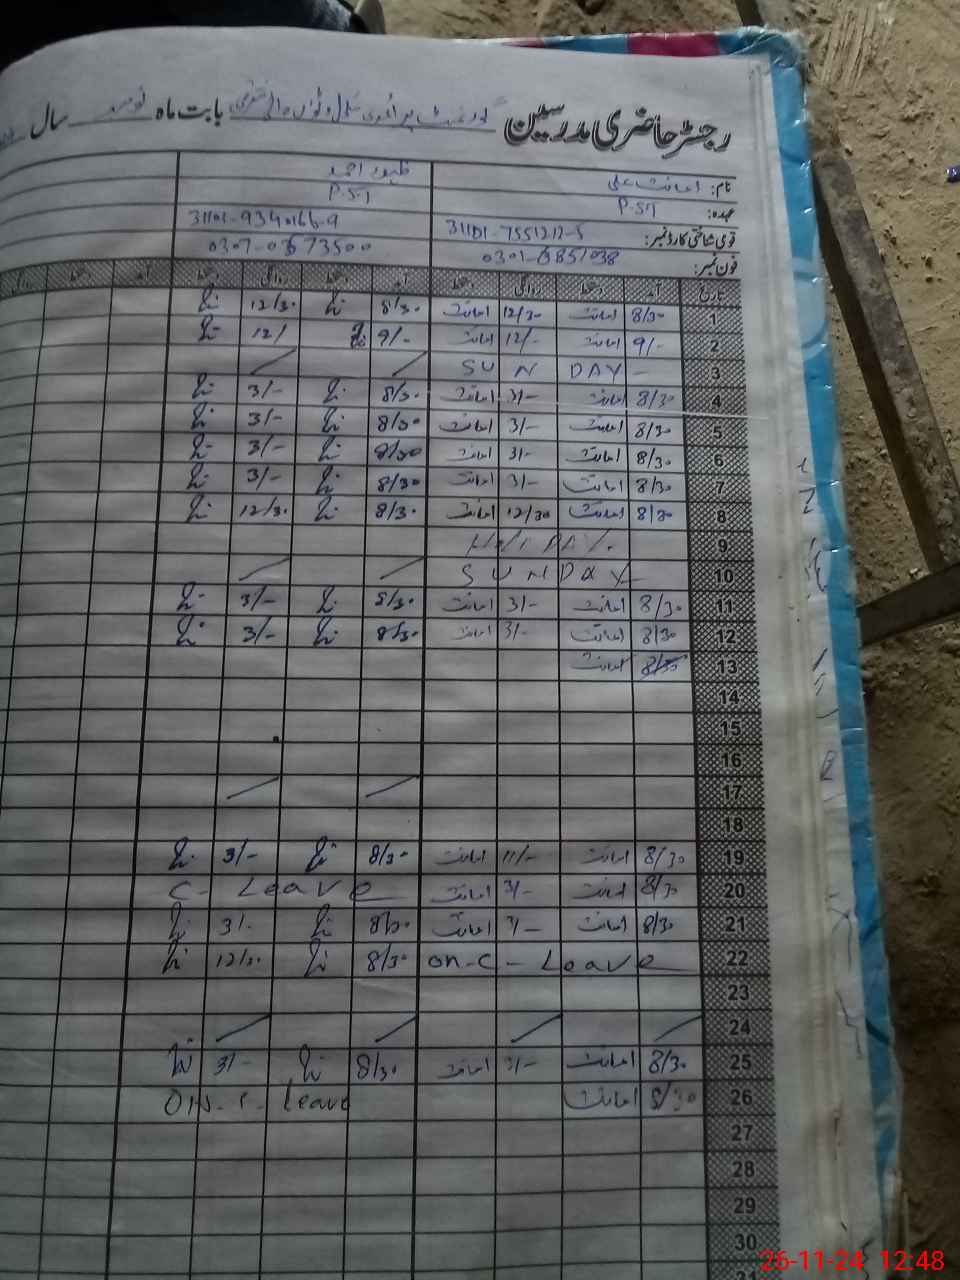 رجسٹر حاضری مدرسین گورنمنٹ پرائمری سکول بابت ماہ نومبر سال
نام: امانت علی ظہور احمد
عہدہ: P.S.T P.S.T
قومی شناختی کارڈ نمبر: 31101-7551212-5 31101-9340166-9
فون نمبر: 0301-6851038 0307-0673500
تاریخ آمد دستخط روانگی دستخط آمد دستخط روانگی دستخط آمد دستخط روانگی
1 8/30 امانت 12/30 امانت 8/30 12/30
2 9/- امانت 12/- امانت 9/- 12/
3 SUN DAY -
4 8/30 امانت 3/- امانت 8/30 3/-
5 8/30 امانت 3/- امانت 8/30 3/-
6 8/30 امانت 3/- امانت 8/30 3/-
7 8/30 امانت 3/- امانت 8/30 3/-
8 8/30 امانت 12/30 امانت 8/30 12/30
9 HoliDAY
10 SUNDAY
11 8/30 امانت 3/- امانت 8/30 3/-
12 8/30 امانت 3/- امانت 8/30 3/-
13 8/30 امانت
14
15
16
17
18
19 8/30 امانت 11/- امانت 8/30 3/-
20 8/30 امانت 3/- امانت C- Leave
21 8/30 امانت 3/- امانت 8/30 3/-
22 on-C- Leave 8/30 12/30
23
24
25 8/30 امانت 3/- امانت 8/30 3/-
26 8/30 امانت ON-C- Leave
27
28
29
30
31
26-11-24 12:48